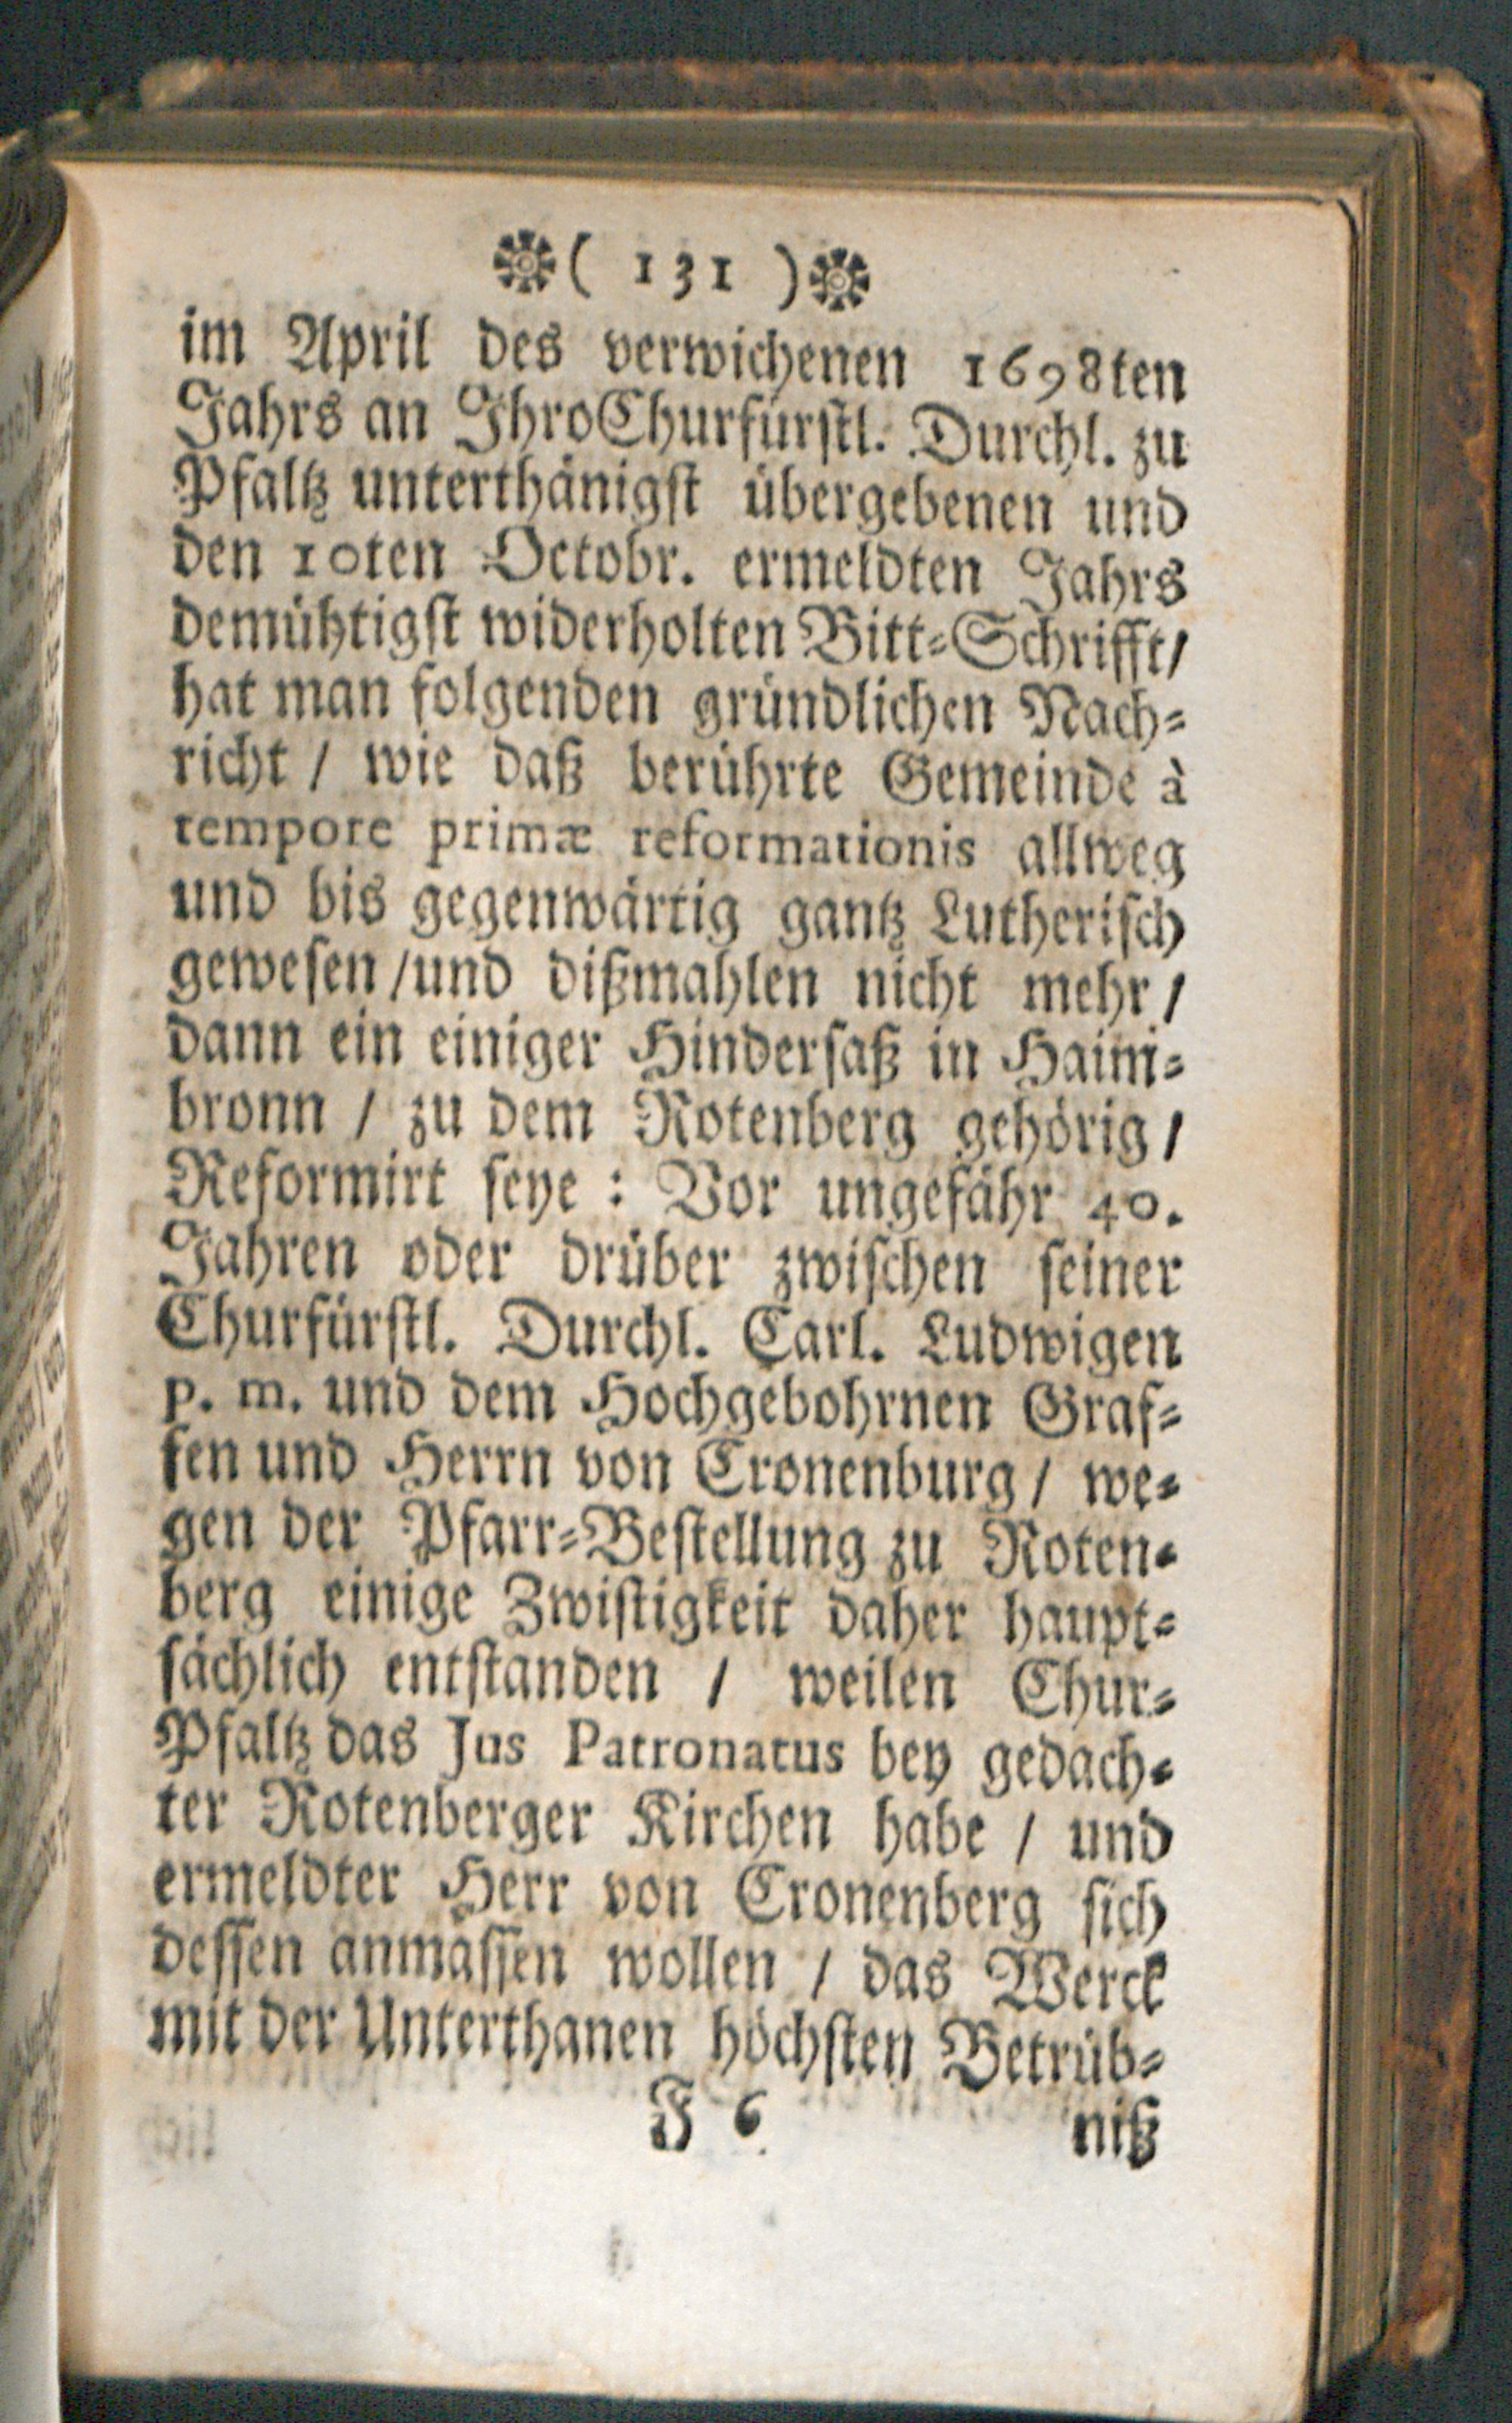 ( 131 )
im April des verwichenen 1698ten
Jahrs an Ihro Churfürstl. Durchl. zu
Pfaltz unterthänigst übergebenen und
den 10ten Octobr. ermeldten Jahrs
demühtigst widerholten Bitt-Schrifft/
hat man folgenden gründlichen Nach-
richt / wie daß berührte Gemeinde à
tempore primæ reformationis allweg
und bis gegenwärtig gantz Lutherisch
gewesen /und dißmahlen nicht mehr /
dann ein einiger Hindersaß in Haini-
bronn / zu dem Rotenberg gehörig /
Reformirt seye : Vor ungefähr 40.
Jahren oder drüber zwischen seiner
Churfürstl. Durchl. Carl. Ludwigen
p. m. und dem Hochgebohrnen Graf-
fen und Herrn von Cronenburg / we-
gen der Pfarr-Bestellung zu Roten-
berg einige Zwistigkeit daher haupt-
sächlich entstanden / weilen Chur-
Pfaltz das Jus Patronatus bey gedach-
ter Rotenberger Kirchen habe / und
ermeldter Herr von Cronenberg sich
dessen anmassen wollen / das Werck
mit der Unterthanen höchsten Betrüb-
F 6 niß